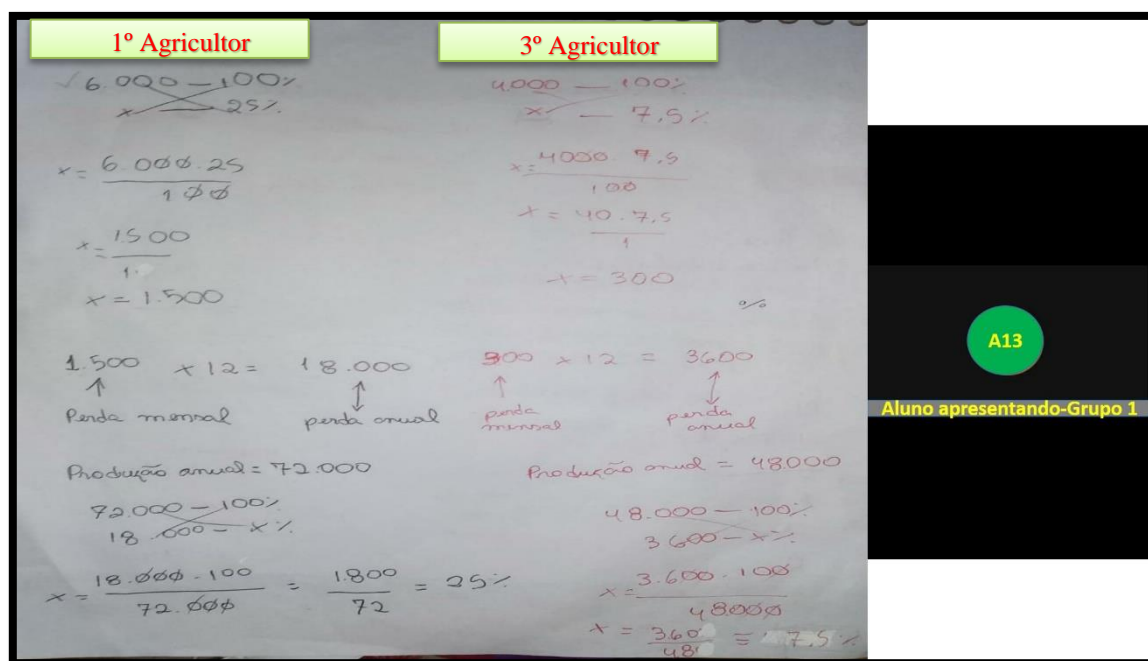 1º Agricultor
6.000 — 100%
x — 25%
x = 6.000.25
100
x = 1500
1.
x = 1.500
1.500 x 12 = 18.000
Perda mensal perda anual
Produção anual = 72.000
72.000 — 100%
18.000 — x%
x = 18.000.100 = 1.800 = 25%
72.000 72
3º Agricultor
4000 — 100%
x — 7,5%
x = 4000 7,5
100
x = 40.7,5
1
x = 300
%
300 x 12 = 3600
perda mensal perda anual
Produção anual = 48000
48.000 — 100%
3600 — x%
x = 3.600.100
48000
x = 360 = 7,5%
48
A13
Aluno apresentando-Grupo 1